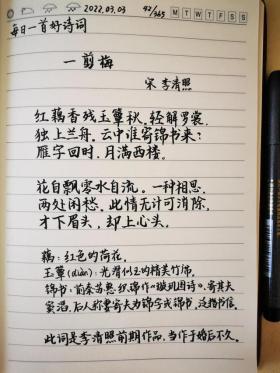 2022.03.03
42/365
M T W T F S S
每日一首好诗词
一剪梅
宋 李清照
红藕香残玉簟秋，轻解罗裳，
独上兰舟，云中谁寄锦书来？
雁字回时，月满西楼。
花自飘零水自流。一种相思，
两处闲愁，此情无计可消除，
才下眉头，却上心头。
藕：红色的荷花。
玉簟(diàn)：光滑似玉的精美竹席。
锦书：前秦苏惠织锦作《璇玑图诗》，寄其夫
窦滔，后人称妻寄夫为锦字或锦书，泛指书信。
此词是李清照前期作品，当作于婚后不久。